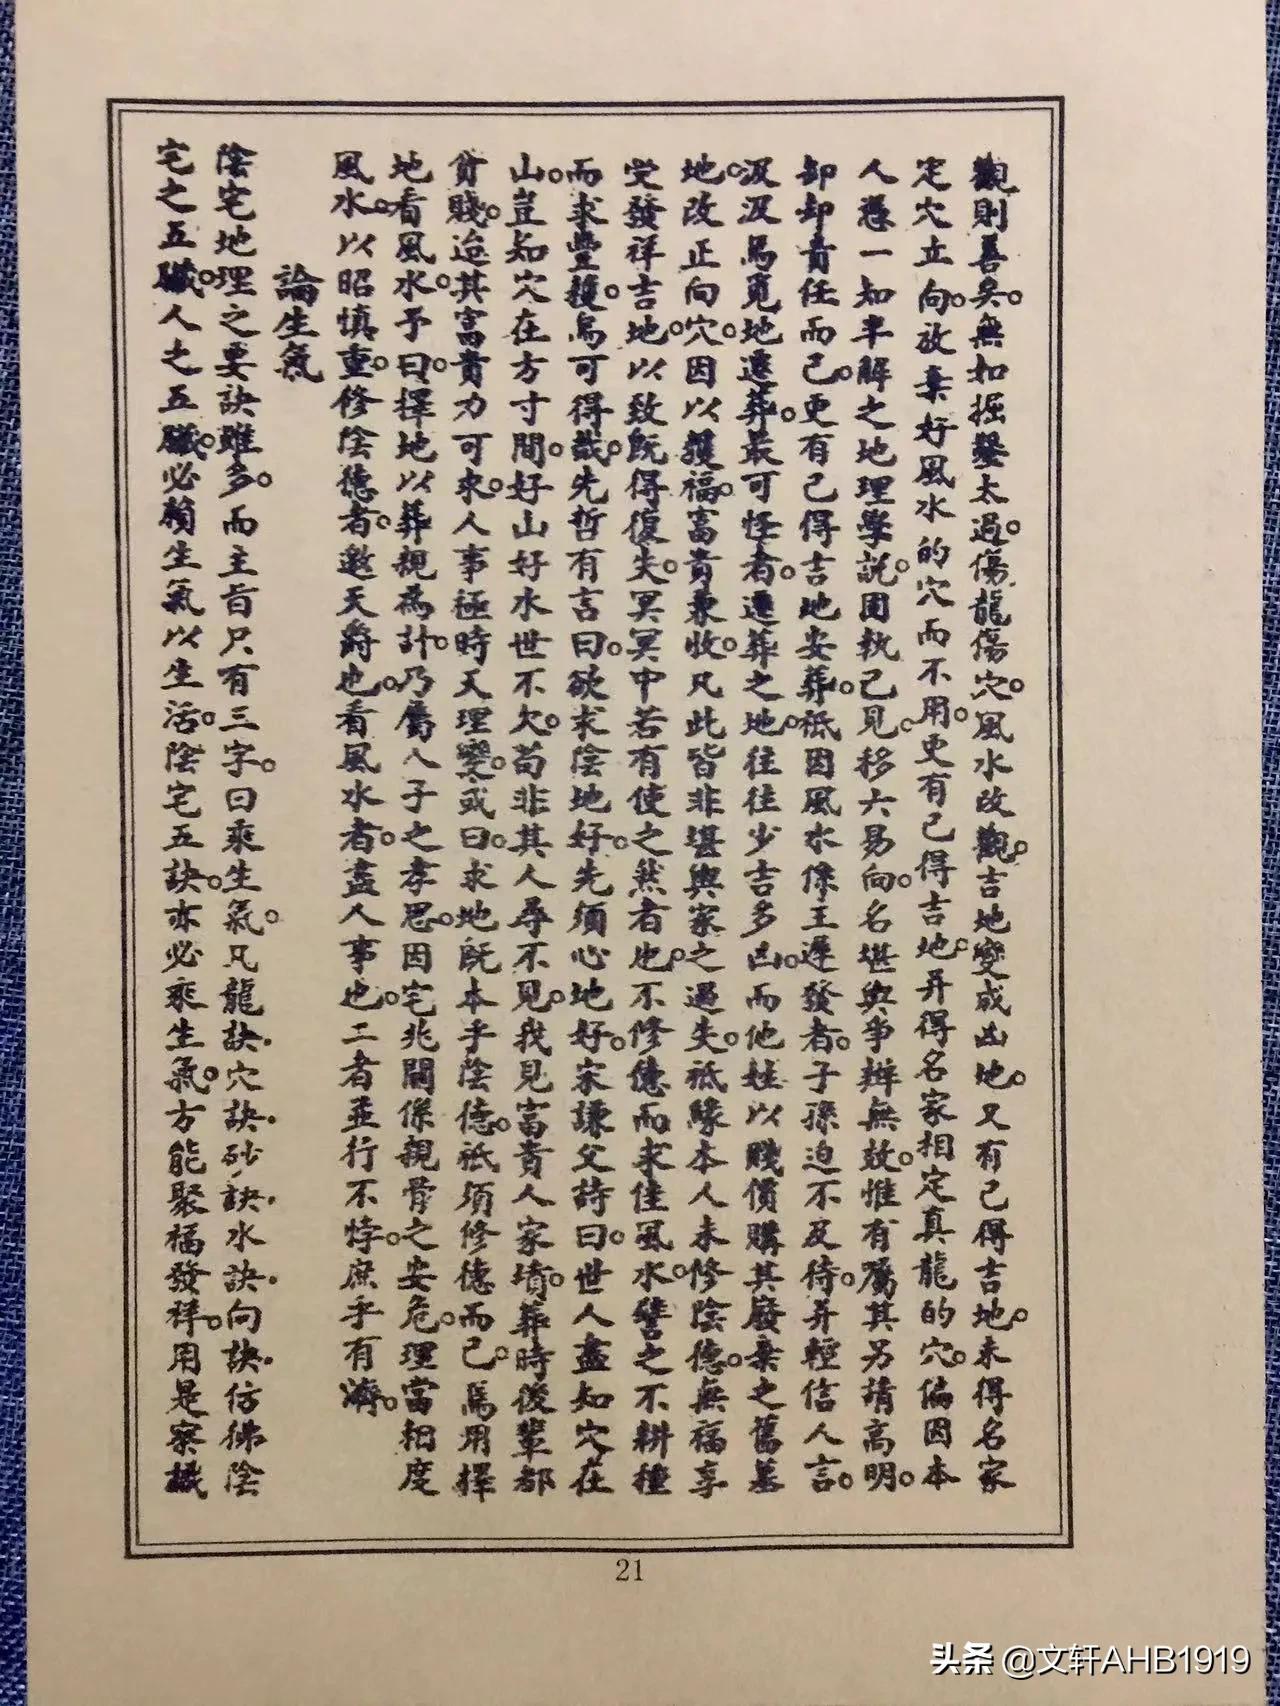 觀則善矣。無如掘鑿太過。傷龍傷穴。風水改觀。吉地變成凶地。又有已得吉地。未得名家
定穴立向。放棄好風水的穴而不用。更有已得吉地。并得名家相定真龍的穴。偏因本
人憑一知半解之地理學説。固執己見。移穴易向。名堪輿事辦無效。惟有屬其另請高明。
卸卸責任而已。更有已得吉地安葬。祇因風水係王遲發者。子孫迫不及待。并輕信人言。
汲汲焉覓地遷葬。最可怪者。遷葬之地。往往少吉多凶。而他姓以賤價購其廢棄之舊墓
地。改正向穴。因以獲福。富貴兼收。凡此皆非堪輿家之過失。祇緣本人未修陰德。無福享
受發祥吉地。以致既得復失。冥冥中若有使之然者也。不修德而求佳風水。譬之不耕種
而求豐穫。烏可得哉。先哲有言曰。欲求陰地好。先須心地好。宋謙父詩曰。世人盡知穴在
山。豈知穴在方寸間。好山好水世不欠。苟非其人尋不見。我見富貴人家墳。葬時後輩都
貧賤。迨其富貴力可求。人事極時天理變。或曰。求地既本乎陰德。祇須修德而已。焉用擇
地看風水。予曰。擇地以葬親為計。乃屬人子之孝思。因宅兆關係親骨之安危。理當相度
風水。以昭慎重。修陰德者。邀天爵也。看風水者。盡人事也。二者並行不悖。庶乎有濟。
論生氣
陰宅地理之要訣雖多。而主旨只有三字。曰乘生氣。凡龍訣.穴訣.砂訣.水訣.向訣.仿彿陰
宅之五臟。人之五臟。必賴生氣以生活。陰宅五訣。亦必乘生氣。方能聚福發祥。用是察議
21
头条 @文轩AHB1919